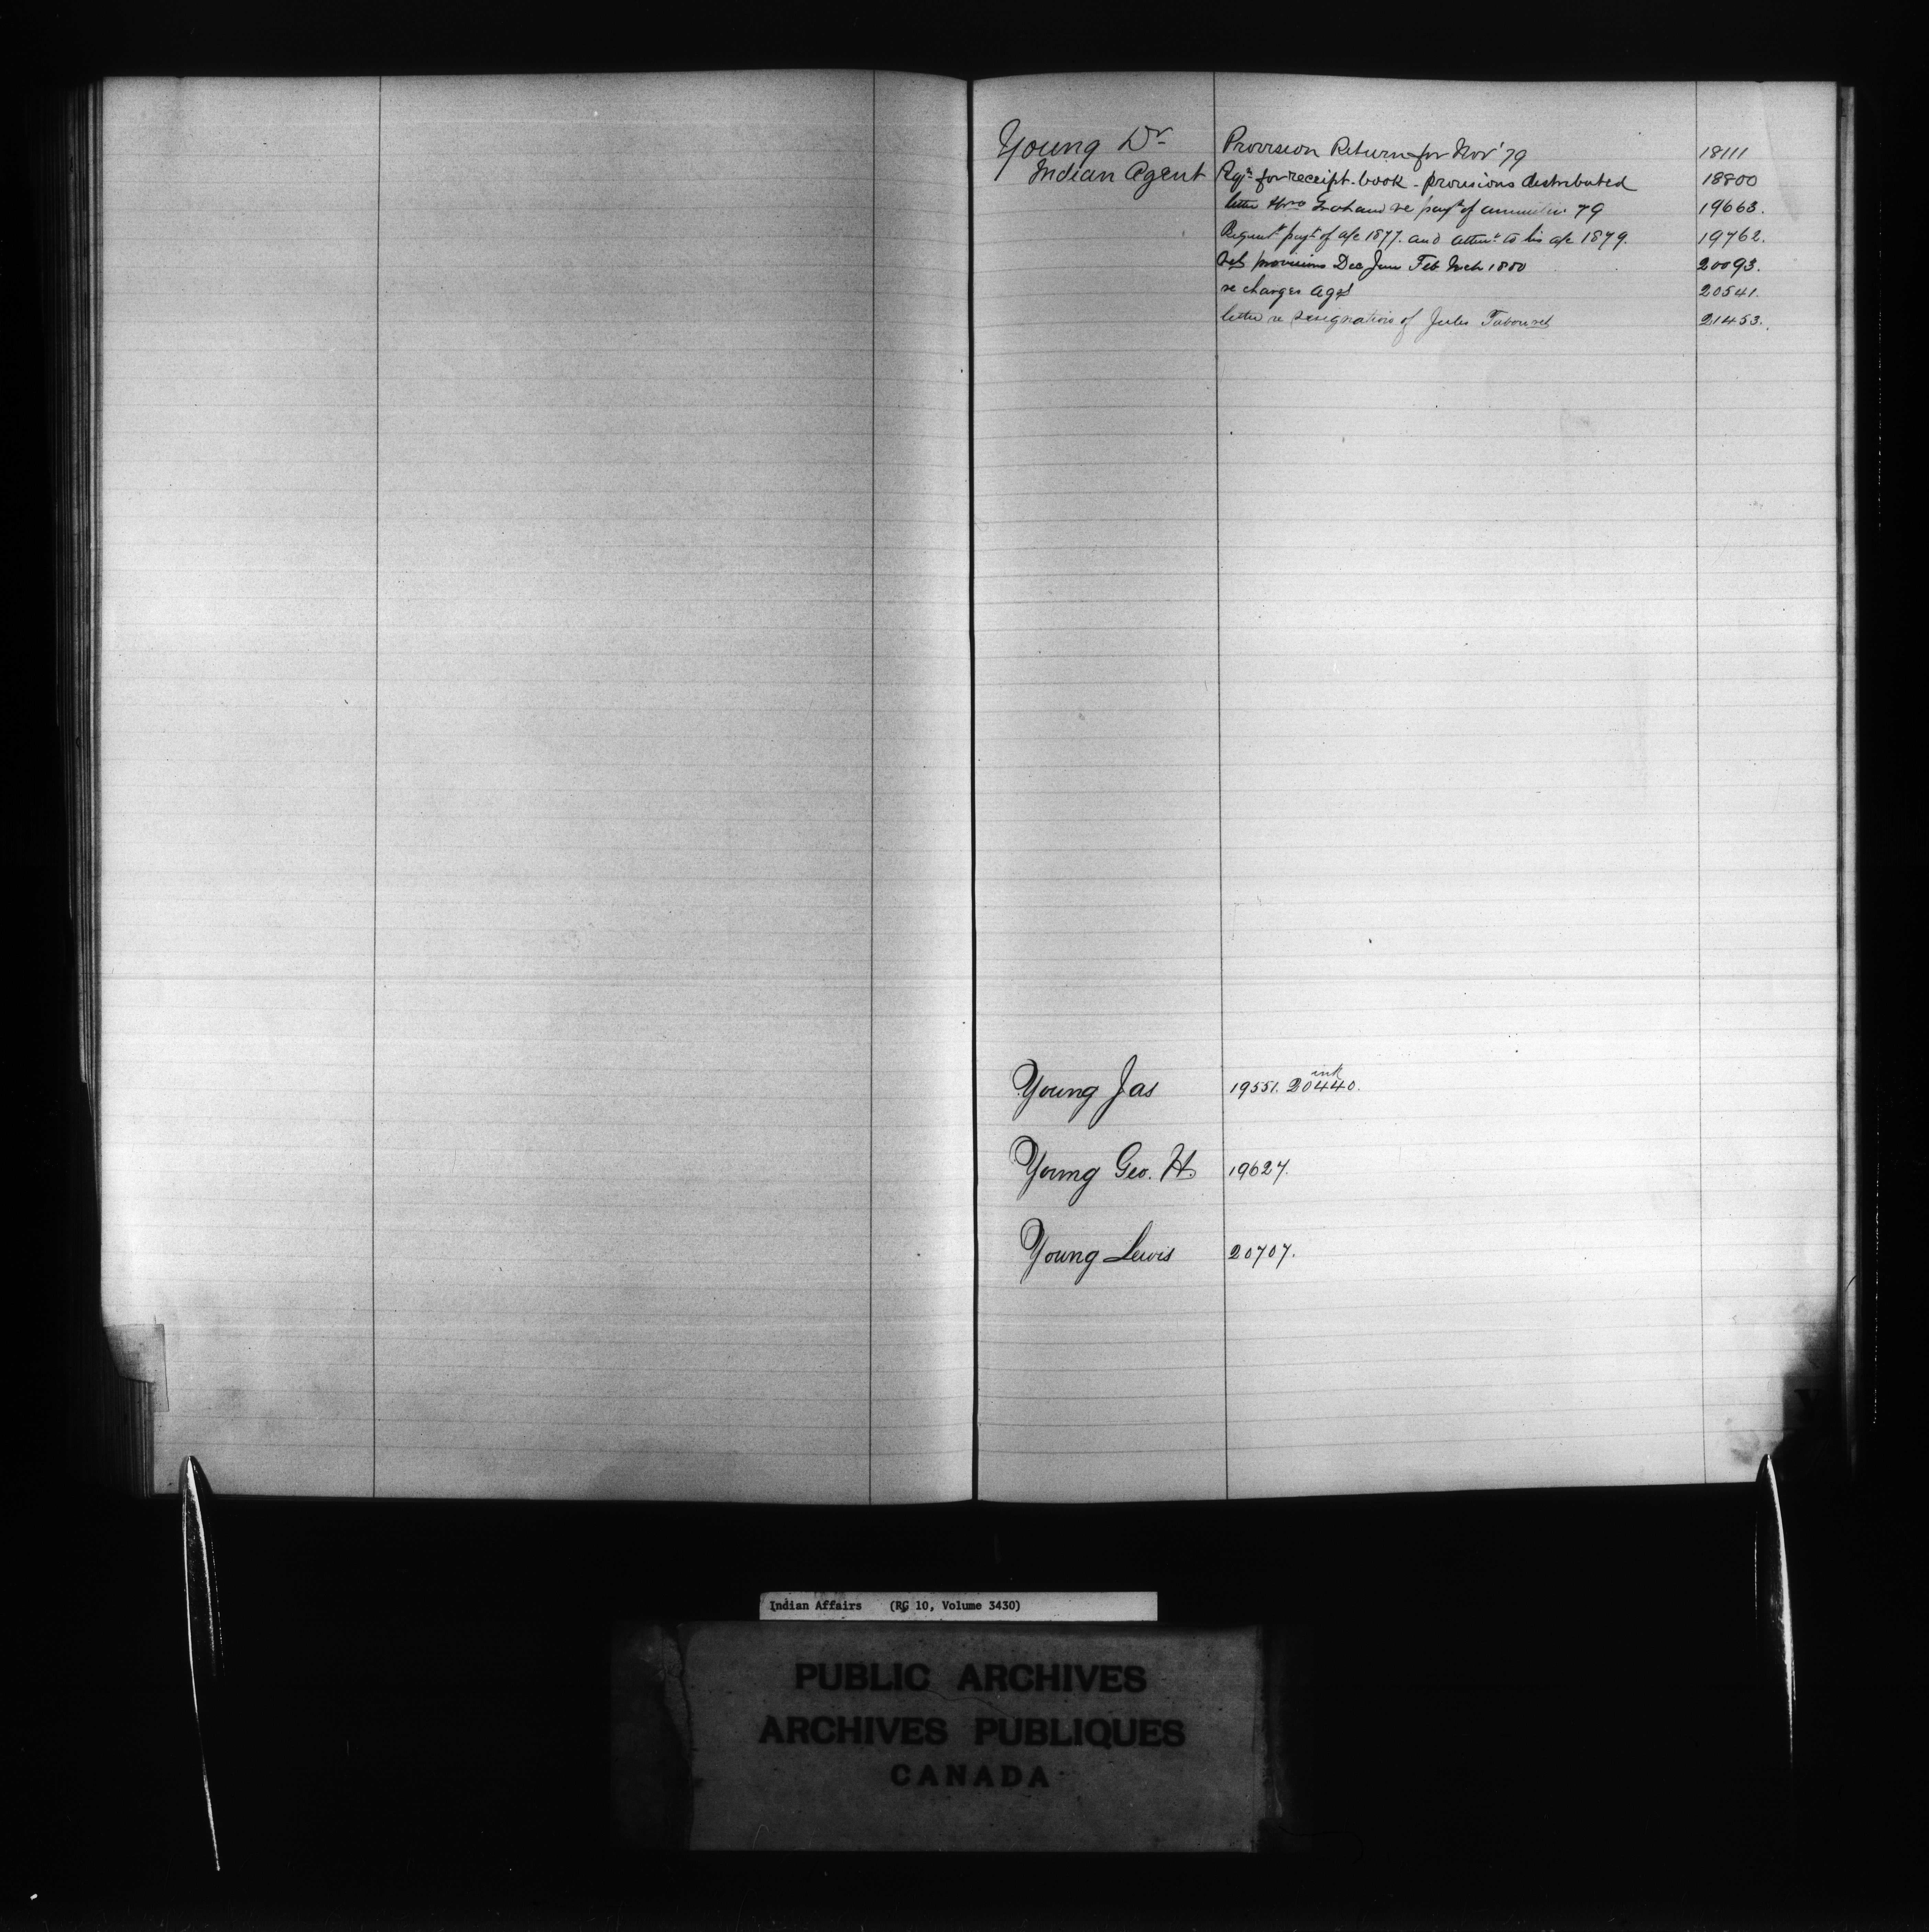 Young Dr Provision Return for Nov' 79 18111
Indian Agent Rqn for receipt-book - provisions distributed 18800
letter thro Graham re payt of annuities 79 19663.
Request payt of a/c 1877. and attent to his a/c 1879. 19762.
Ret provisions Dec Jan Feb Mch 1880 20093.
re charges agst 20541.
letter re resignation of Jules Tabouret 21453.
ink
Young Jas 19551. 20440.
Young Geo. H. 19627.
Young Lewis 20707.
Indian Affairs (RG 10, Volume 3430)
PUBLIC ARCHIVES
ARCHIVES PUBLIQUES
CANADA